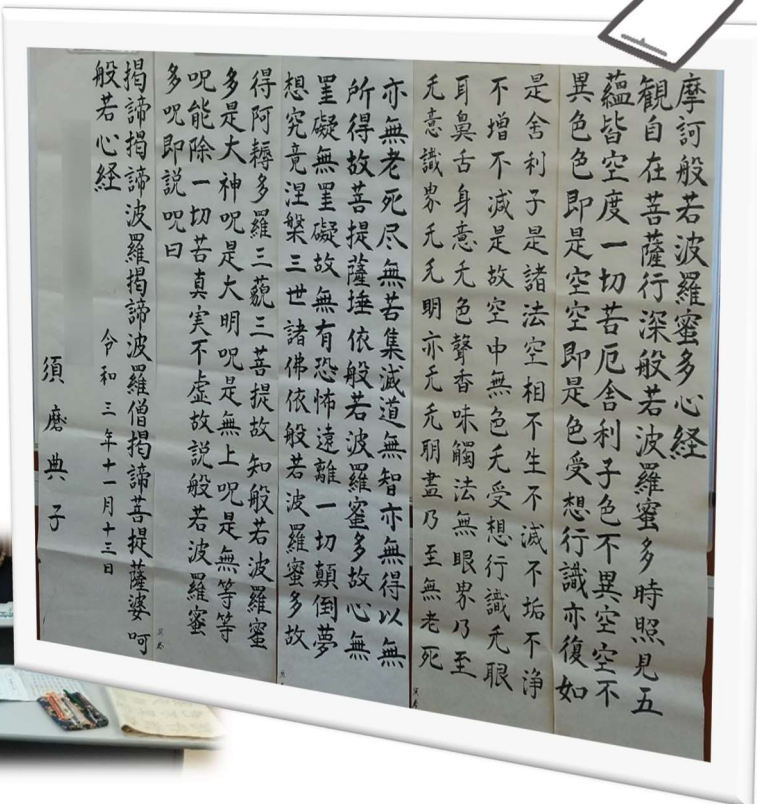 摩訶般若波羅蜜多心経
観自在菩薩行深般若波羅蜜多時照見五
蘊皆空度一切苦厄舎利子色不異空空不
異色色即是空空即是色受想行識亦復如
是舎利子是諸法空相不生不滅不垢不浄
不増不減是故空中無色无受想行識无眼
耳鼻舌身意无色聲香味觸法無眼界乃至
无意識界无无明亦无无明盡乃至無老死
亦無老死尽無苦集滅道無智亦無得以無
所得故菩提薩埵依般若波羅蜜多故心無
罣礙無罣礙故無有恐怖遠離一切顛倒夢
想究竟涅槃三世諸佛依般若波羅蜜多故
得阿耨多羅三藐三菩提故知般若波羅蜜
多是大神呪是大明呪是無上呪是無等等
呪能除一切苦真実不虚故説般若波羅蜜
多呪即説呪曰
揭諦揭諦波羅揭諦波羅僧揭諦菩提薩婆呵
般若心経
令和三年十一月十三日
須磨典子